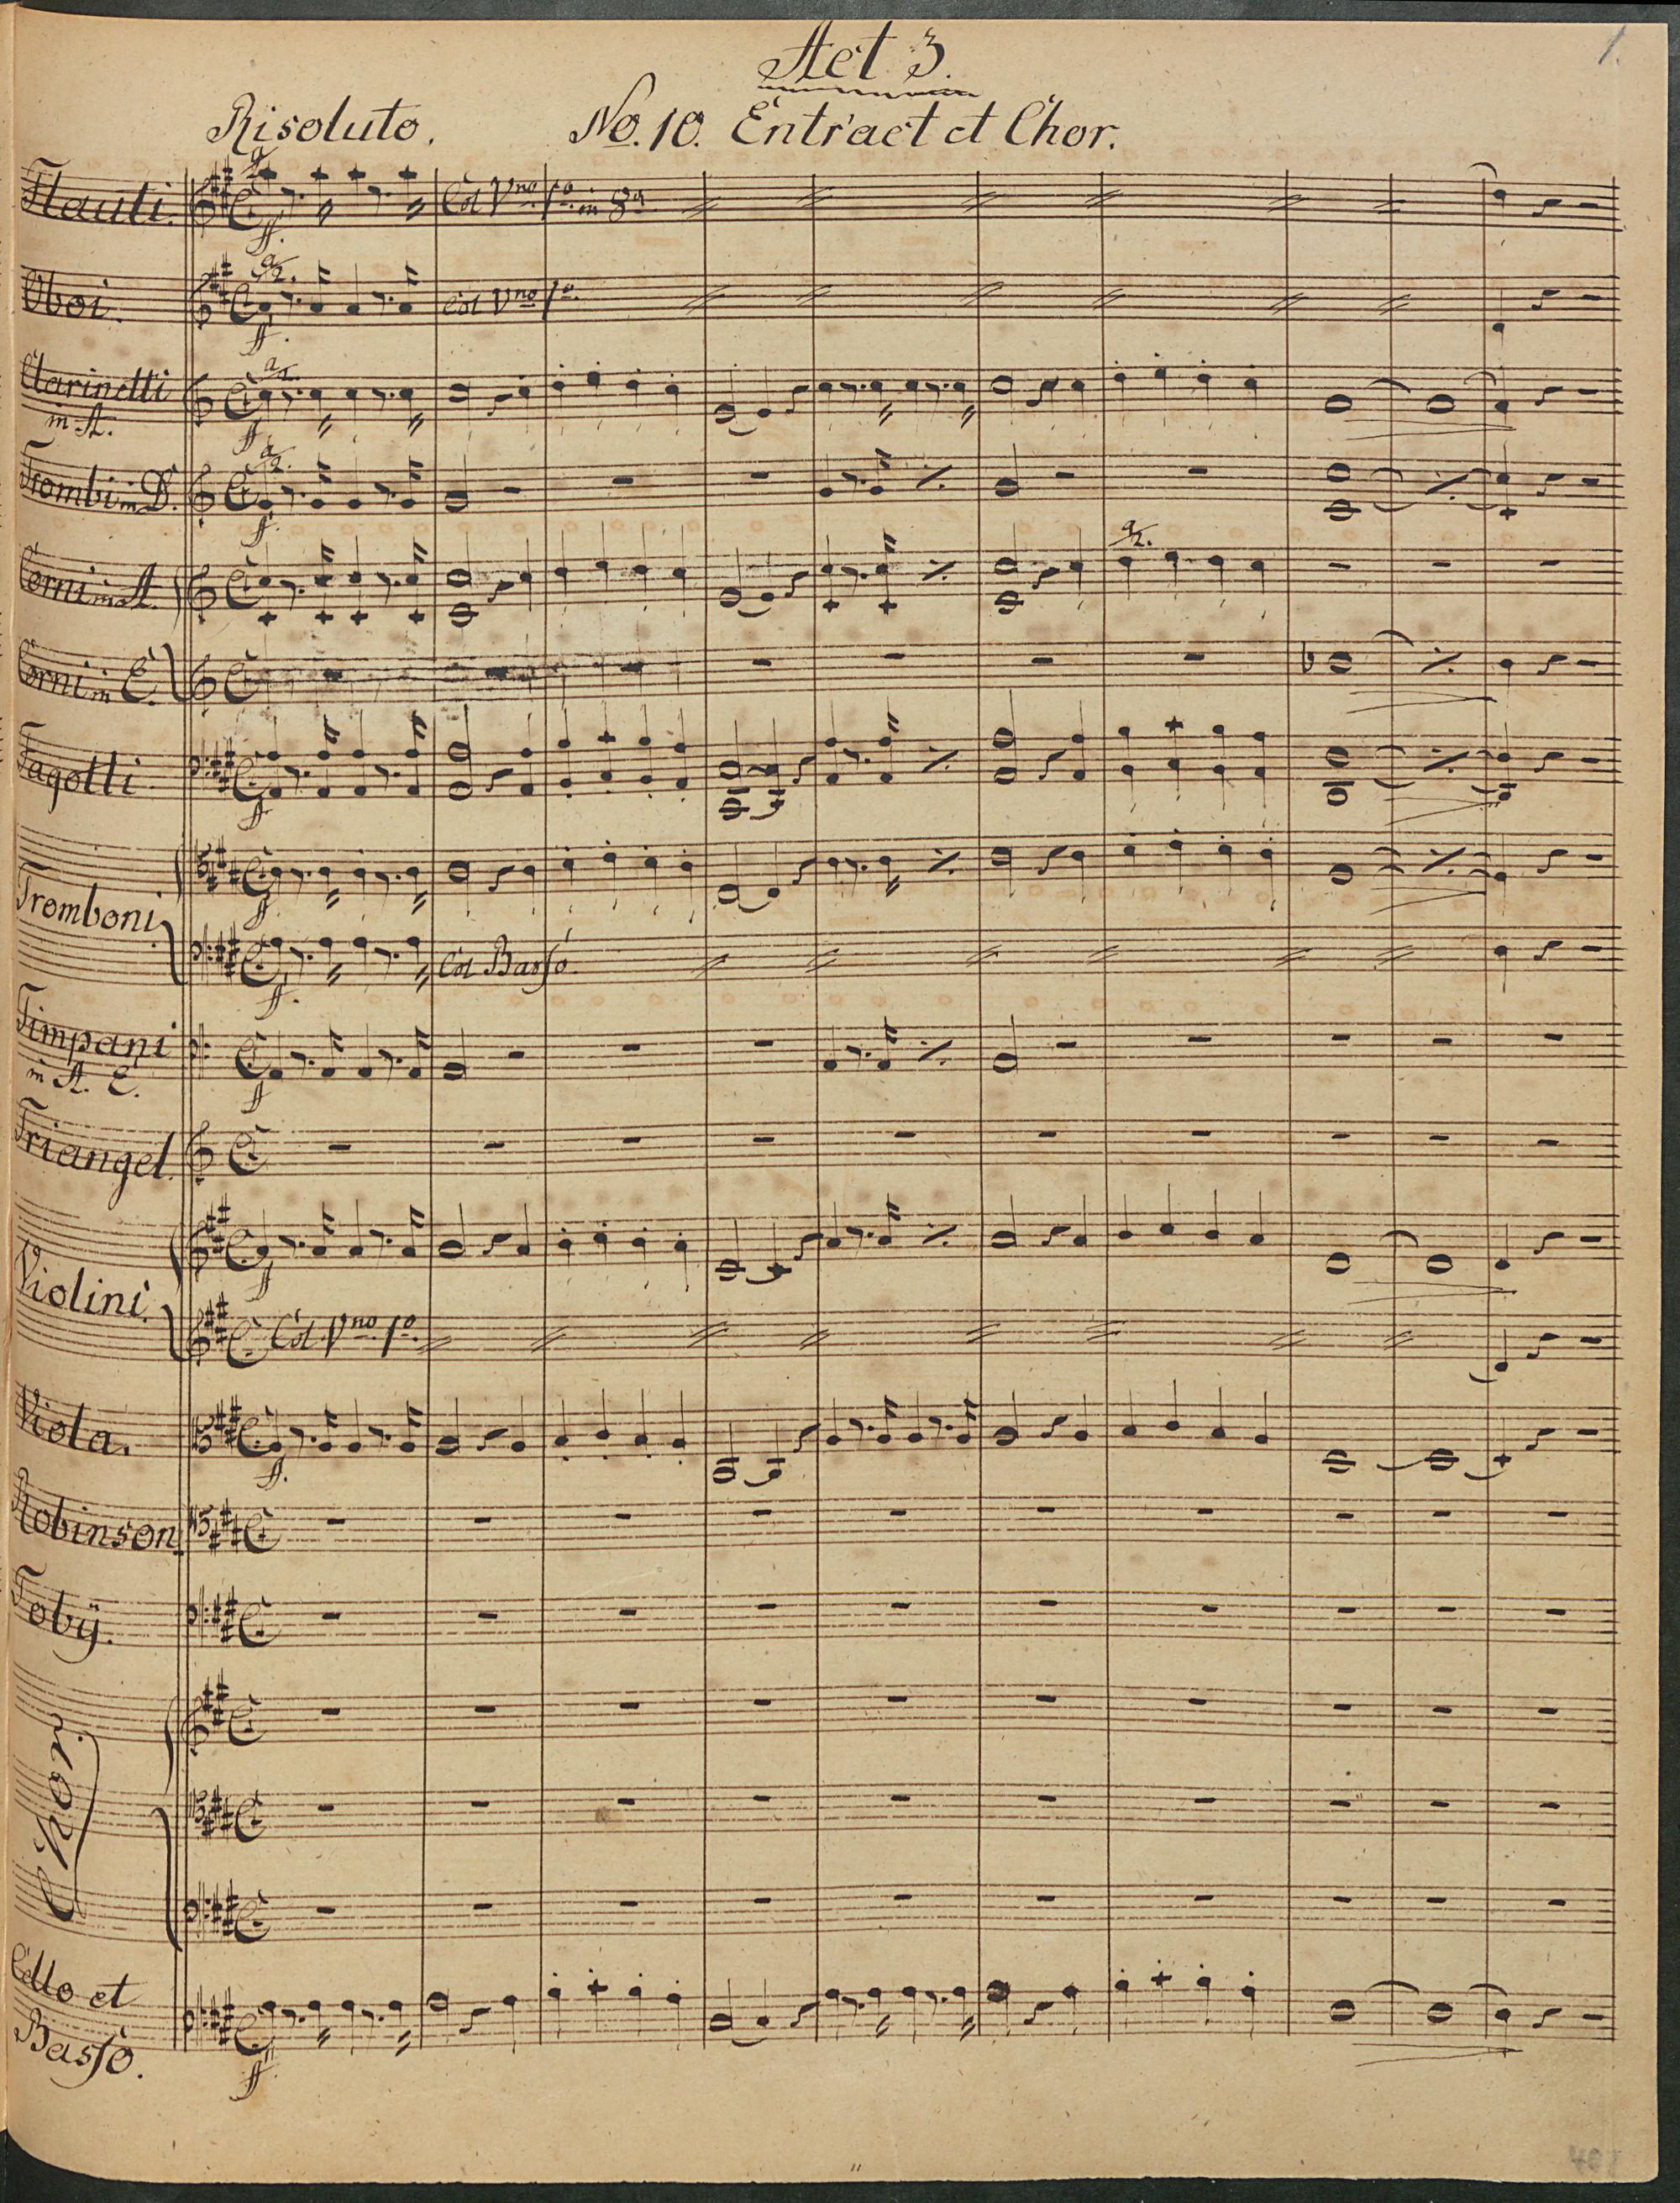 Act 3.
1.
Risoluto. No. 10. Entr'act et Chor.
Flauti. a2 ff. Col Vno 1o in 8a
Oboi. a2. ff. Col Vno 1o.
Clarinetti a2. ff
in A.
Trombi in D. a2. f.
Corni in A. a2.
Corni in E.
Fagotti ff.
Tromboni ff
ff. Col Basso.
Timpani f
in A. E.
Triangel.
Violini. f
Col Vno 1o.
Viola. ff.
Robinson
Tobÿ.
Chor.
Cello et
Basso. ff.